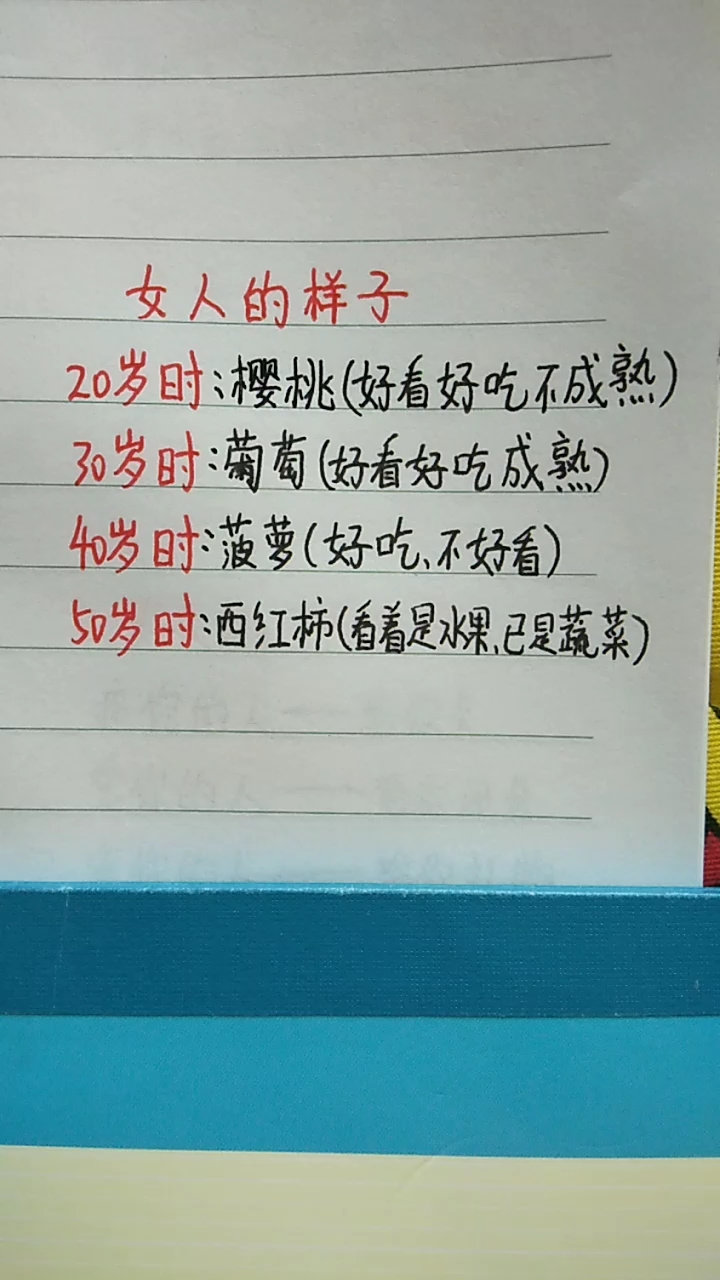 女人的样子
20岁时:樱桃(好看好吃不成熟)
30岁时:葡萄(好看好吃成熟)
40岁时:菠萝(好吃、不好看)
50岁时:西红柿(看着是水果、已是蔬菜)